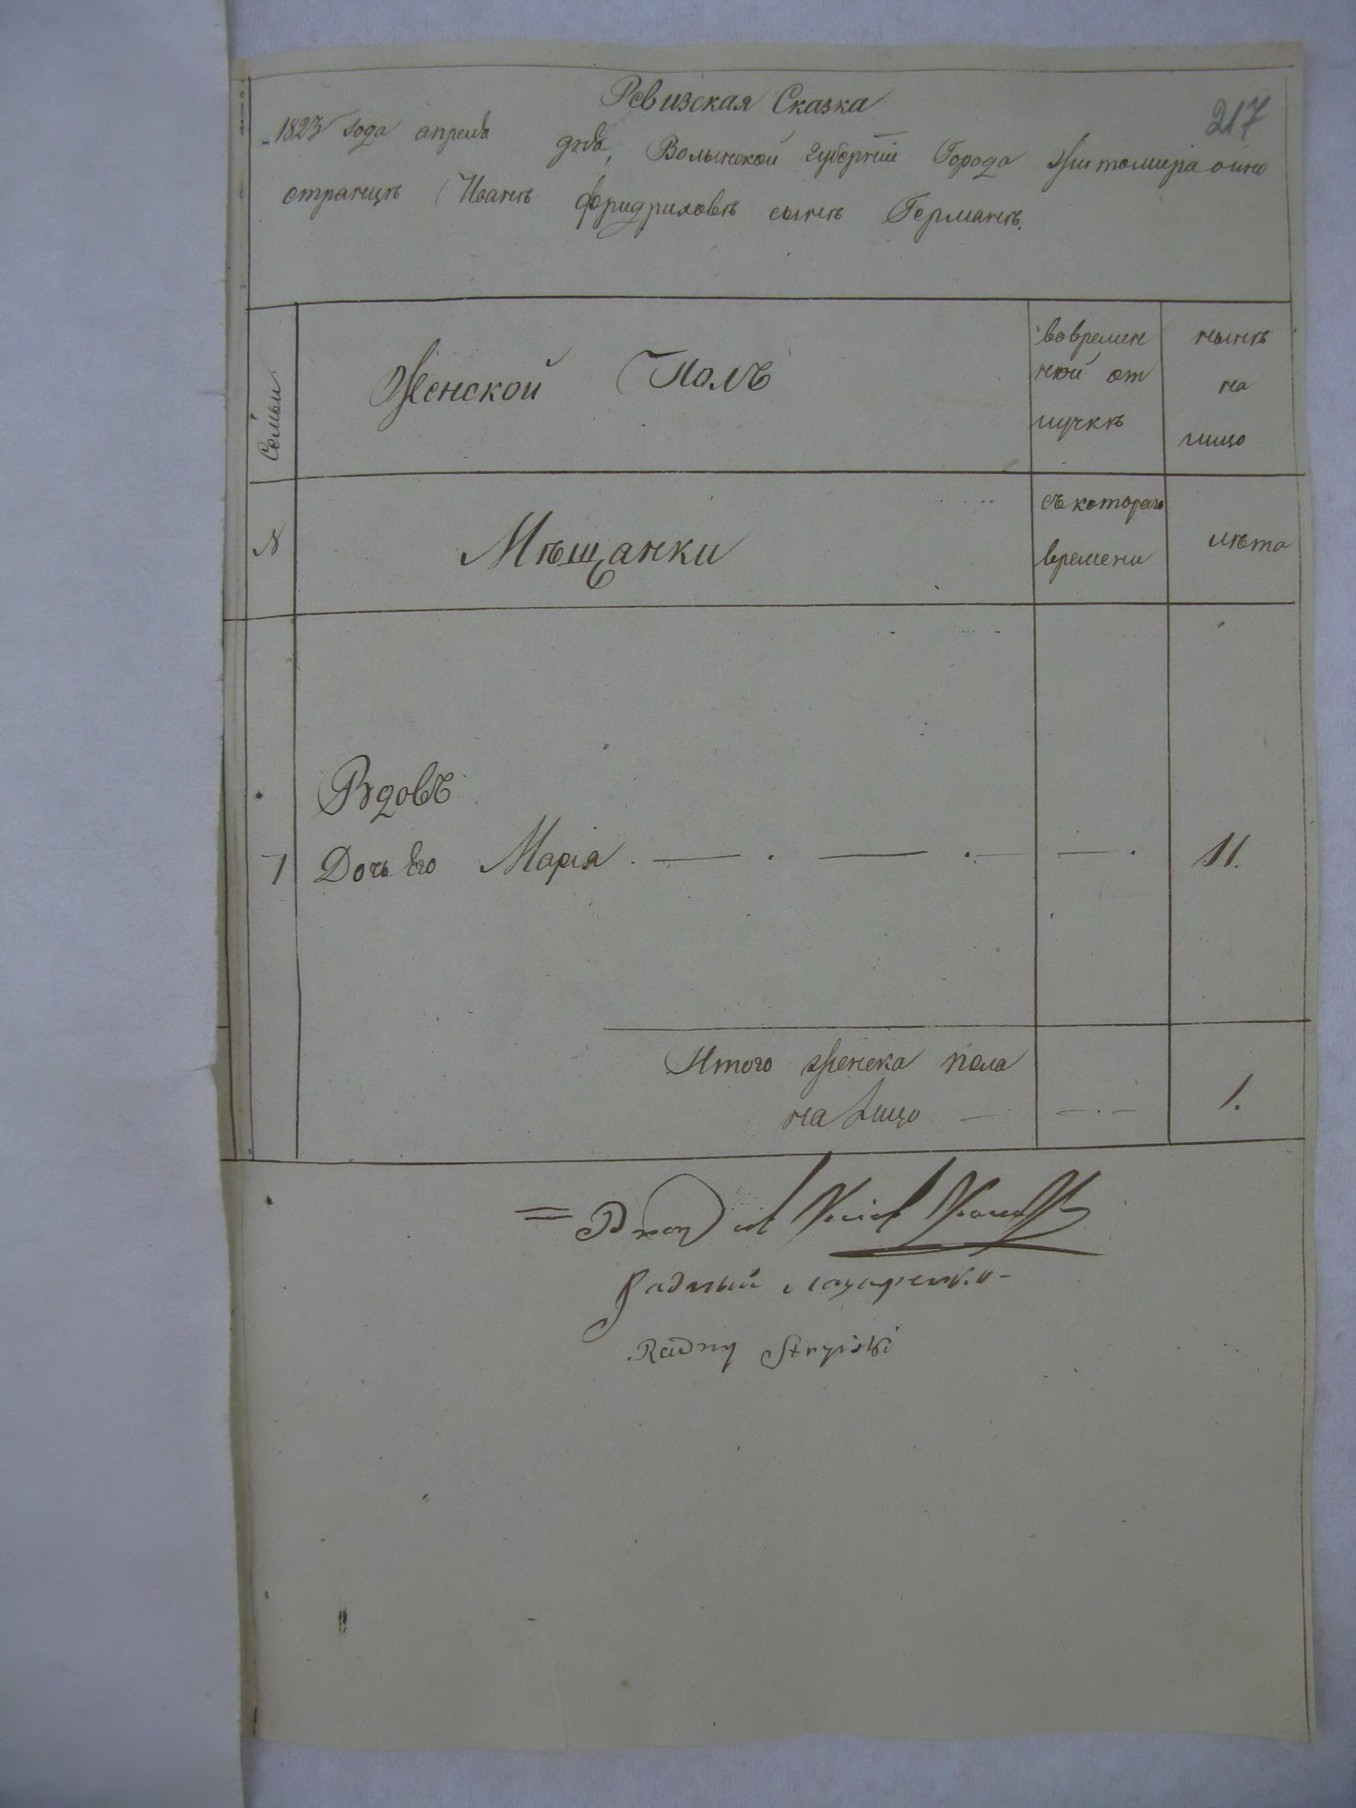 217
Ревизская Сказка
1823 года апреля дня, Волынской губернии Города Житомира о ино
странцѣ Иванѣ Фридриховѣ сынѣ Германѣ.
Семьи
Женской Полъ
во времен
ной от
лучкѣ
нынѣ
на
лицо
№
Мѣщанки
съ котораго
времени
лѣта
Вдовъ
1 Дочь Его Марiя 11.
Итого женска пола
на Лицо 1.
Радный Лазаренко
Radny